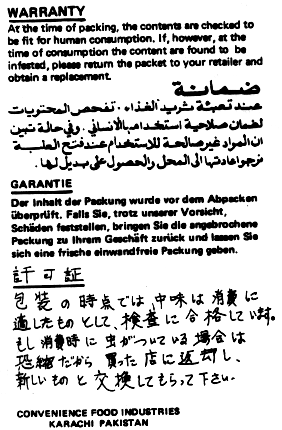 WARRANTY
At the time of packing, the contents are checked to
be fit for human consumption. If, however, at the
time of consumption the content are found to be
infested, please return the packet to your retailer and
obtain a replacement.
ضمانة
عند تعبئة شريد الغذاء، تفحص المحتويات
لضمان صلاحية استخدامها الأنساني. وفي حالة تبين
ان المواد غير صالحة للاستخدام عند فتح العلبة
نرجو اعادتها الى المحل والحصول على بديل لها.
GARANTIE
Der Inhalt der Packung wurde vor dem Abpacken
überprüft. Falls Sie, trotz unserer Vorsicht,
Schäden feststellen, bringen Sie die angebrochene
Packung zu Ihrem Geschäft zurück und lassen Sie
sich eine frische einwandfreie Packung geben.
許可証
包装の時点では中味は消費に
適したものとして、検査に合格しています。
もし消費時に虫がついている場合は
恐縮だから買った店に返却し、
新しいものと交換してもらって下さい.
CONVENIENCE FOOD INDUSTRIES
KARACHI PAKISTAN